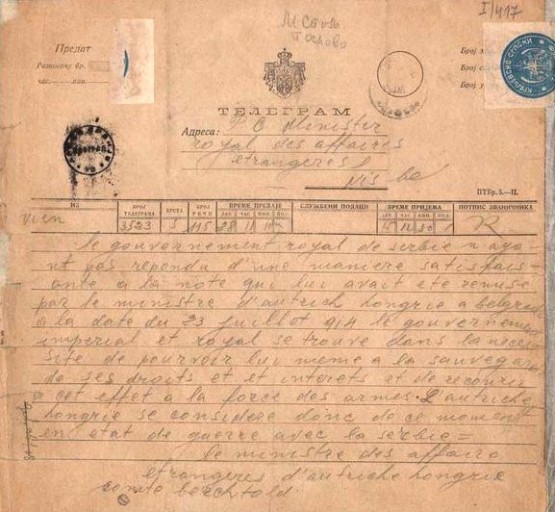 I/417
Предат
ТЕЛЕГРАМ
Адреса:
Minister
royal des affaires
etrangeres
Nis
ИЗ
БРОЈ ТЕЛЕГРАМА
ВРСТА
БРОЈ РЕЧИ
ВРЕМЕ ПРЕДАЈЕ
СЛУЖБЕНИ ПОДАЦИ
ВРЕМЕ ПРИЈЕМА
ПОТПИС ЗВАНИЧНИКА
3523 5 115 28
R
le gouvernement royal de serbie n aya-
nt pas repondu d'une maniere satisfais-
ante a la note qui lui avait ete remise
par le ministre d'autrich hongrie a belgrade
a la date du 23 juillot 914 le gouvernement
imperial et royal se trouve dans la neces
site de pourvoir lui meme a la sauvegar
de ses droits et et interets et de recourir
a cet effet a la force des armes. L'autriche
hongrie se considere donc de ce moment
en etat de guerre avec la serbie =
le ministre des affaire
etrangeres d'autriche hongrie
comte berchtold.